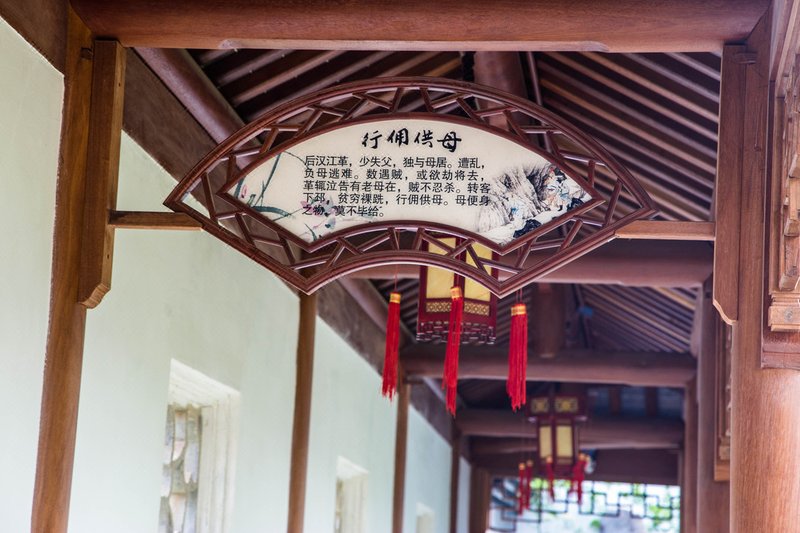 行佣供母
后汉江革，少失父，独与母居。遭乱，
负母逃难。数遇贼，或欲劫将去，
革辄泣告有老母在，贼不忍杀。转客
下邳，贫穷裸跣，行佣供母。母便身
之物，莫不毕给。